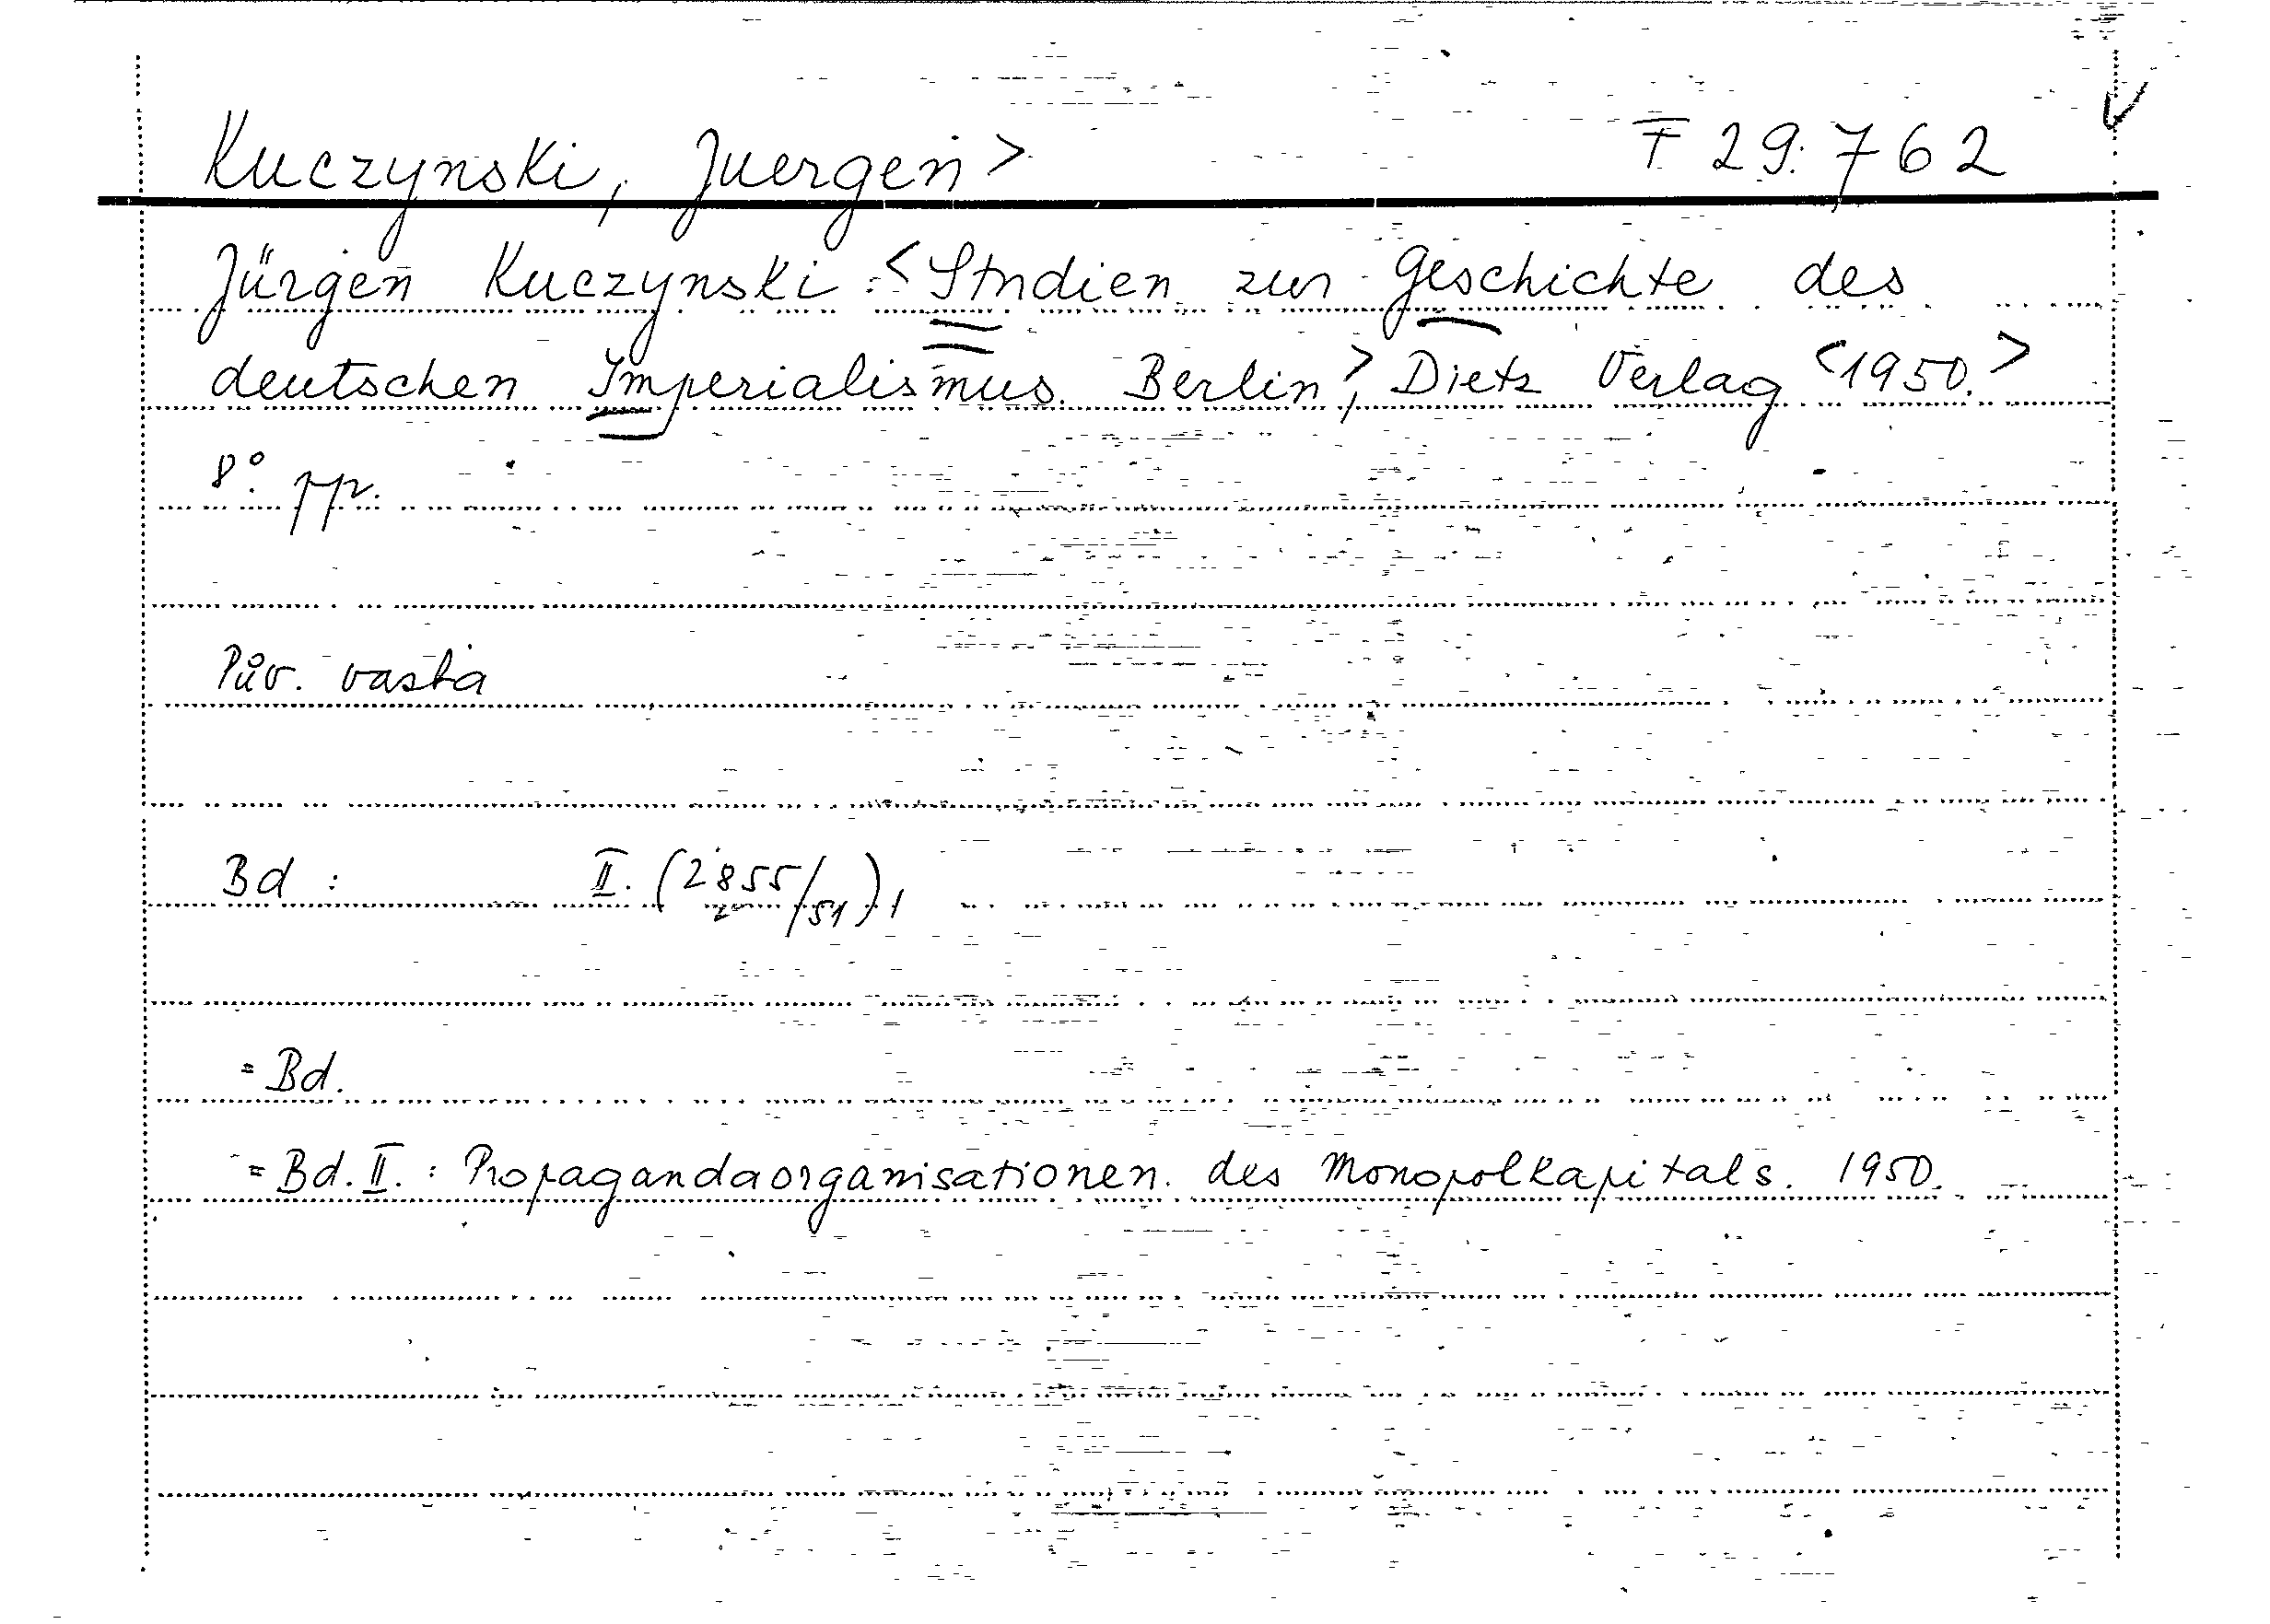 Kuczynski, Juergen> F 29.762
Jürgen Kuczynski :<Studien zur Geschichte des
deutschen Imperialismus. Berlin>, Dietz Verlag <1950.>
8°. pp.
Pův. vazba
Bd : II. (2855/51),
= Bd.
= Bd. II. : Propagandaorganisationen des Monopolkapitals. 1950.